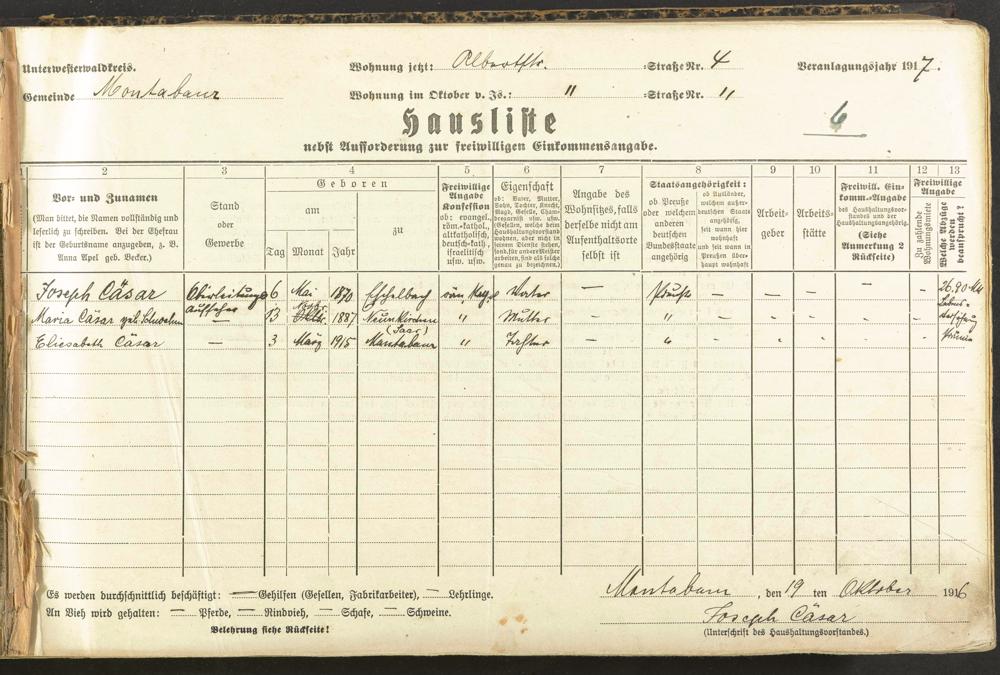 Unterwesterwaldkreis.
Gemeinde Montabaur
Wohnung jetzt: Albertstr. Straße Nr. 4
Wohnung im Oktober v. Js.: " Straße Nr. "
Veranlagungsjahr 1917.
6
Hausliste
nebst Aufforderung zur freiwilligen Einkommensangabe.
2 3 4 5 6 7 8 9 10 11 12 13
Vor- und Zunamen
(Man bittet, die Namen vollständig und
leserlich zu schreiben. Bei der Ehefrau
ist der Geburtsname anzugeben, z. B.
Anna Apel geb. Becker.)
Stand
oder
Gewerbe
Geboren
am
Tag Monat Jahr
zu
Freiwillige
Angabe
Konfession
ob: evangel.,
röm.-kathol.,
altkatholisch,
deutsch-kath.,
israelitisch
usw. usw.
Eigenschaft
ob: Vater, Mutter,
Sohn, Tochter, Knecht,
Magd, Geselle, Cham-
bregarnist usw. usw.
(Gesellen, welche beim
Haushaltungsvorstand
wohnen, aber nicht in
seinem Dienste stehen,
sind, für andere Meister
arbeiten, sind als solche
genau zu bezeichnen.)
Angabe des
Wohnsitzes, falls
derselbe nicht am
Aufenthaltsorte
selbst ist
Staatsangehörigkeit:
ob Preuße
oder welchem
anderen
deutschen
Bundesstaate
angehörig
ob Ausländer,
welchem außer-
deutschen Staat
angehörig,
seit wann hier
wohnhaft
und seit wann in
Preußen über-
haupt wohnhaft
Arbeit-
geber
Arbeits-
stätte
Freiwill. Ein-
komm.-Angabe
des Haushaltungsvor-
standes und der
Haushaltungsangehörig.
(Siehe
Anmerkung 2
Rückseite)
Freiwillige
Angabe
Zu zahlende
Wohnungsmiete
Welche Abzüge
werden
beansprucht?
Joseph Cäsar Oberleitungsaufseher 6 Mai 1870 Eschelbach röm. Kath. Vater — Preuße — — — — — 26.90 Mk
Maria Cäsar geb. 13 1887 Neunkirchen (Saar) " Mutter — " - - - - -
Eliesabeth Cäsar — 3 März 1915 Montabaur " Tochter — " - - - - -
Es werden durchschnittlich beschäftigt: — Gehilfen (Gesellen, Fabrikarbeiter), — Lehrlinge.
An Vieh wird gehalten: — Pferde, — Rindvieh, — Schafe, — Schweine.
Belehrung siehe Rückseite!
Montabaur, den 19 ten Oktober 1916
Joseph Cäsar
(Unterschrift des Haushaltungsvorstandes.)